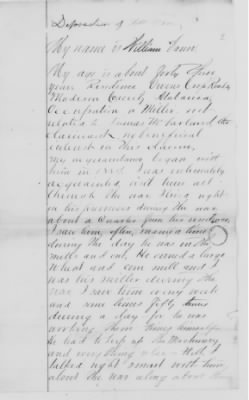 Deposition of
2
My name is William Town
My age is about forty three
years Residence Owens Cross Roads
Madison County Alabama,
Occupation a Miller not
related to James the
claimant no beneficial
interest in this claim,
my acquaintance began with
him in I was intimately
acquainted with him all
through the war living right
on his premises during the war
about a quarter from his residence,
I saw him often, many a time
during the day he was in the
mills and out. He owned a large
wheat and corn mill and I
was his miller during the
war I saw him every week
and some times fifty times
during a day for he was
working them things himself
he had to keep up the Machinery
and every thing else - Well I
talked right smart with him,
about the war along above the